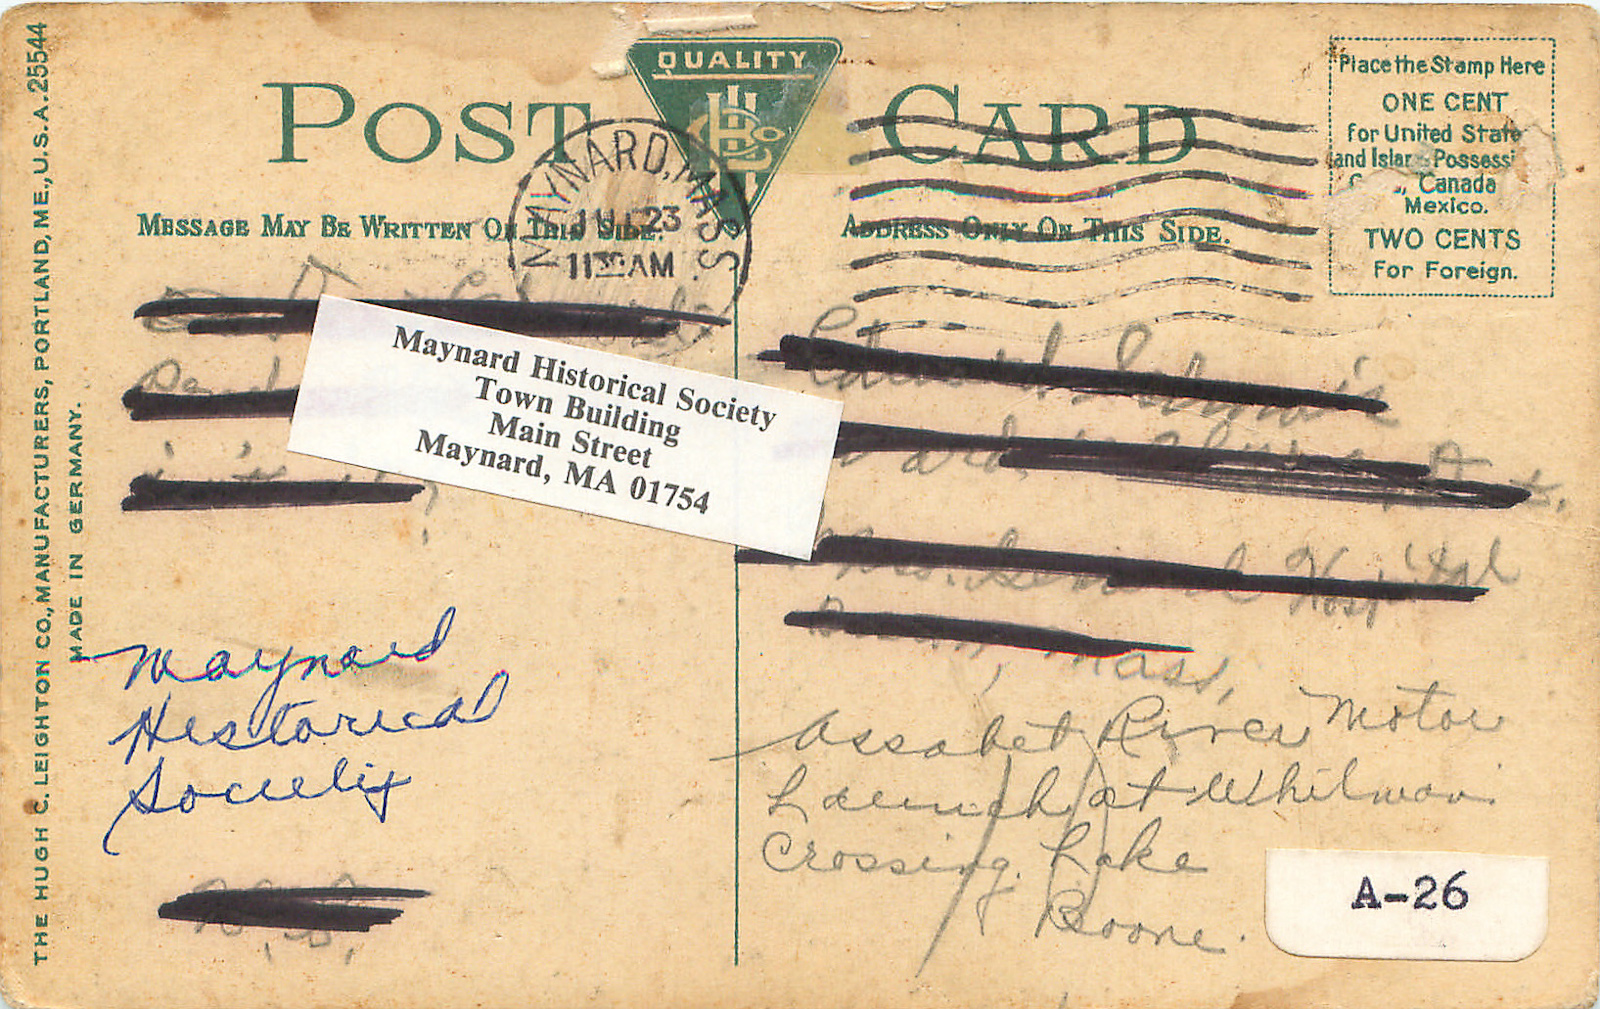 THE HUGH C. LEIGHTON CO., MANUFACTURERS, PORTLAND, ME., U.S.A. 25544
MADE IN GERMANY.
POST CARD
QUALITY
MESSAGE MAY BE WRITTEN ON THIS SIDE.
ADDRESS ONLY ON THIS SIDE.
MAYNARD, MASS.
JUL 23
1130 AM
Place the Stamp Here
ONE CENT
for United State
and Islan Possessi
Canada
Mexico.
TWO CENTS
For Foreign.
Maynard Historical Society
Town Building
Main Street
Maynard, MA 01754
Maynard
Historical
Society
Edward
Ward
Hospital
Mass,
Assabet River Motor
Launch at Whitman
Crossing. Lake
Boone.
A-26